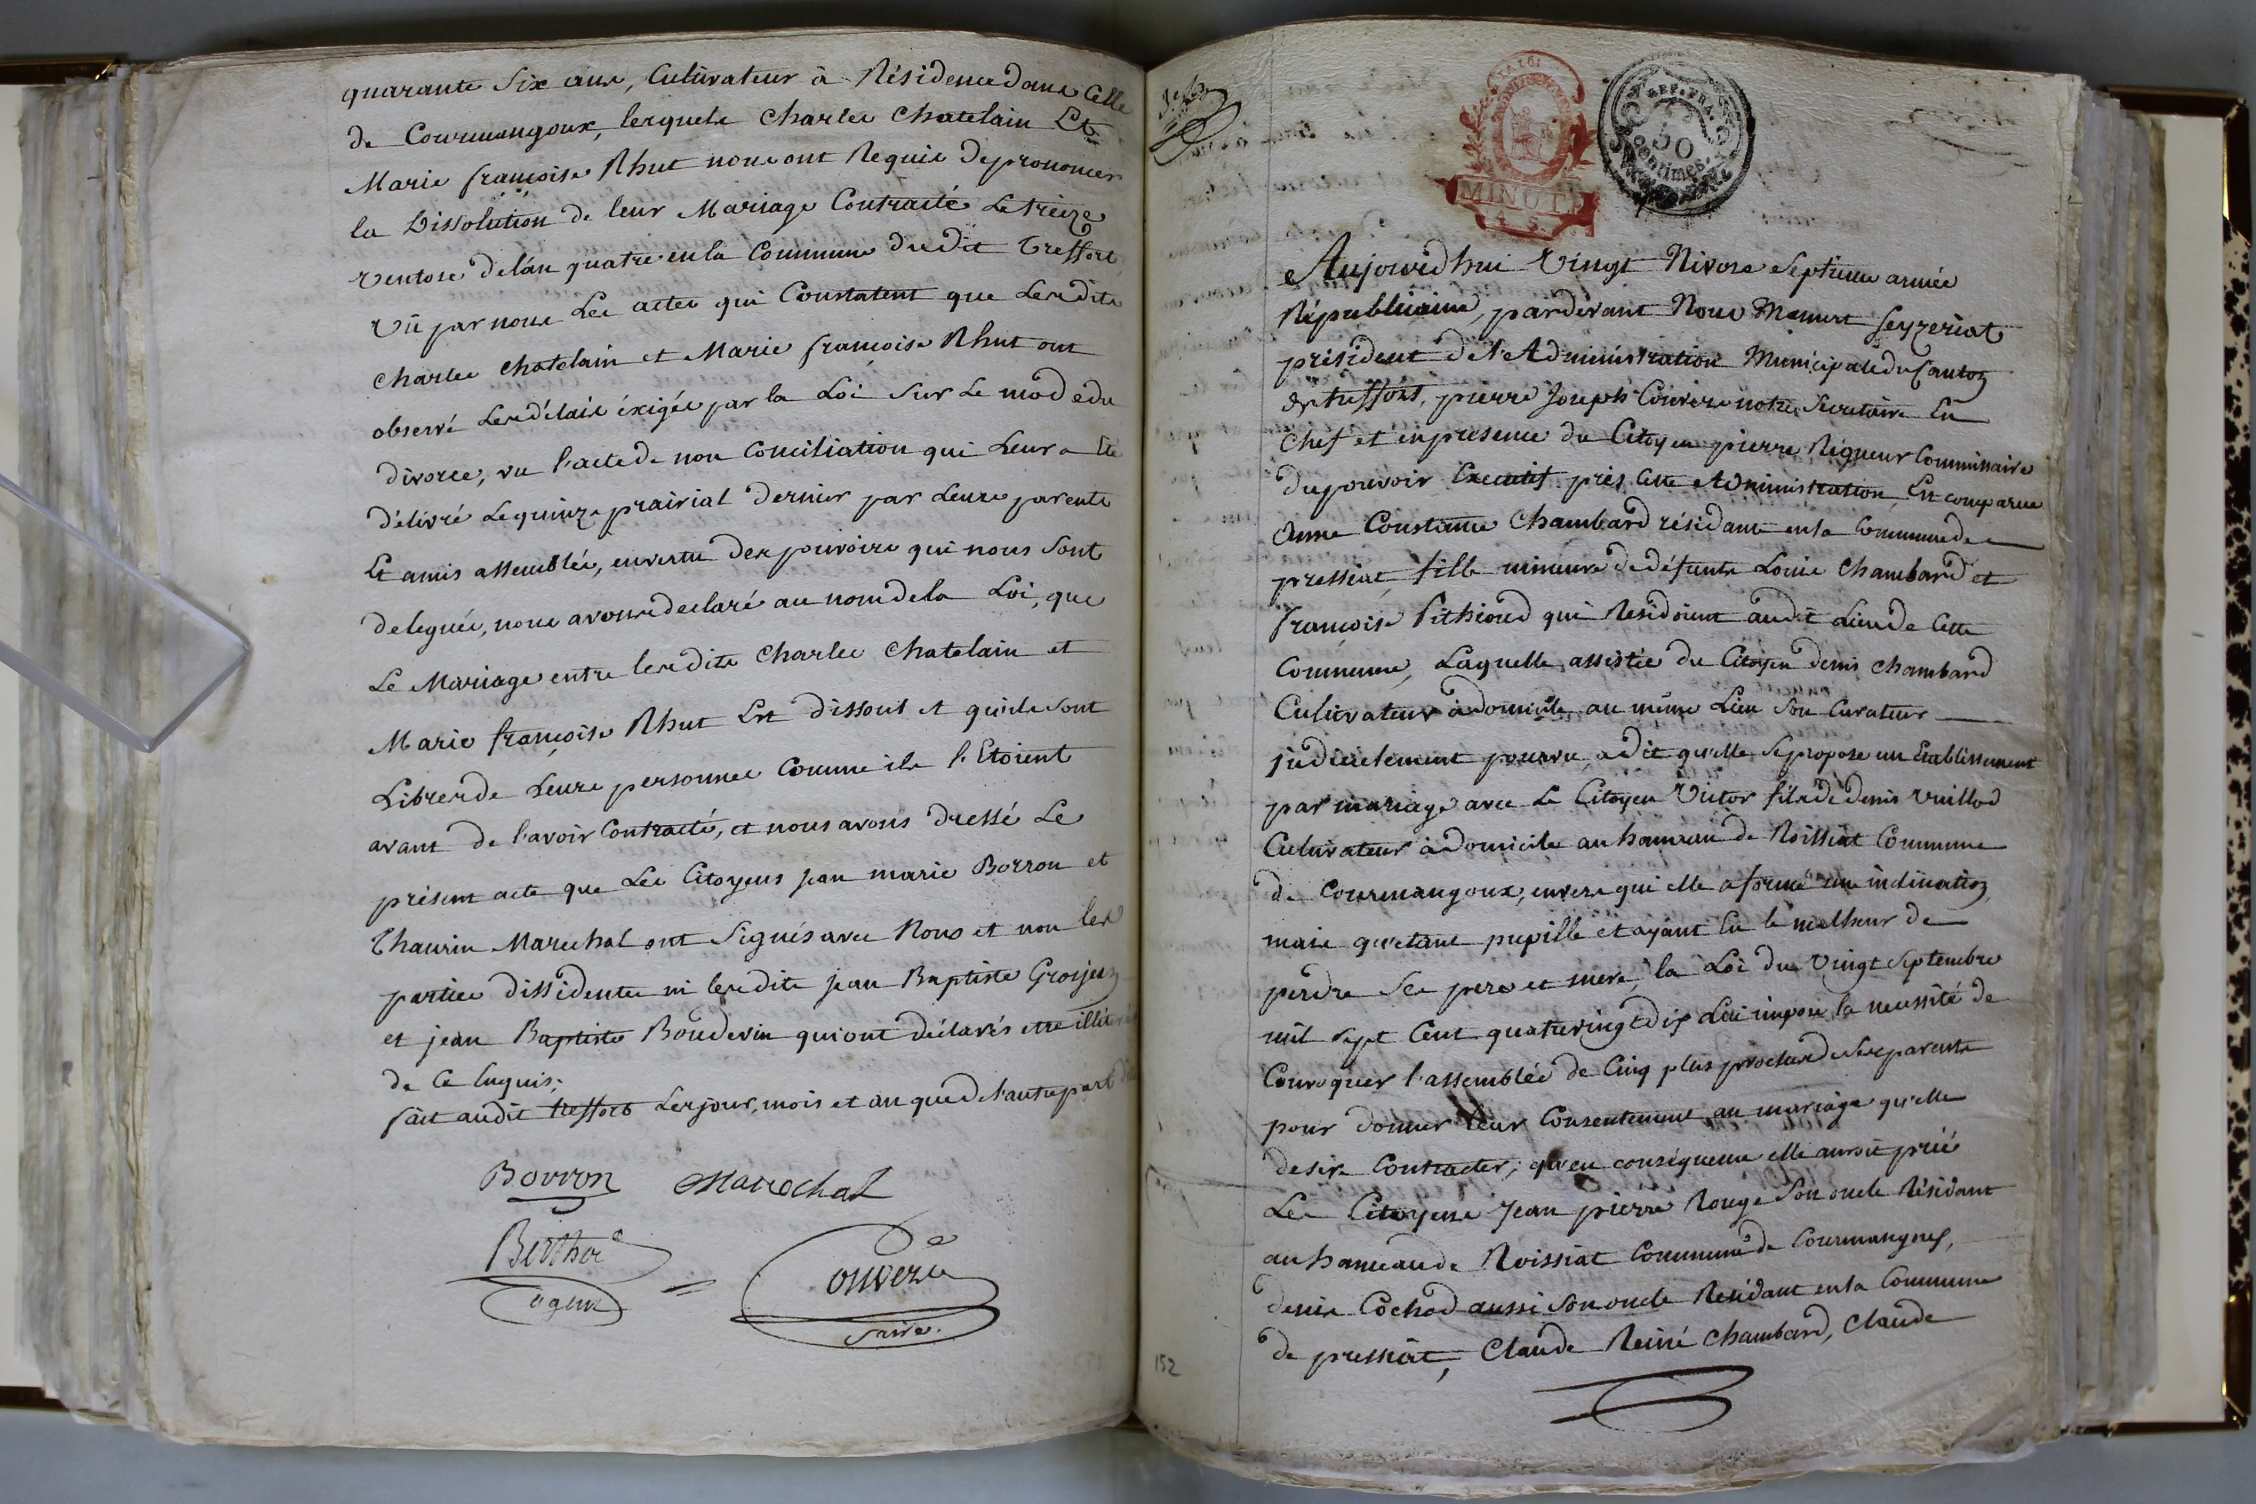 quarante Six ans, Cultivateur à Résidence dans Celle
de Courmangoux, lesquels Charles Chatelain Et
Marie françoise Rhut nous ont Requis de prononcer
la Dissolution de leur Mariage Contracté Le treize
Ventose de l'an quatre en la Commune du dit Treffort
Vû par nous Les actes qui Constatent que Lesdits
Charles Chatelain et Marie françoise Rhut ont
observé Les délais éxigés par la Loi Sur Le mode du
divorce, vu l'acte de non Conciliation qui Leur a Eté
délivré Le quinze prairial dernier par Leurs parents
Et amis assemblés, en vertu des pouvoirs qui nous Sont
delegués, nous avons declaré au nom de la Loi, que
Le Mariage entre lesdits Charles Chatelain et
Marie françoise Rhut Est dissout et qu'ils Sont
Libres de Leurs personnes Comme ils l'Etoient
avant de l'avoir Contracté, et nous avons dressé Le
présent acte que Les Citoyens Jean marie Borron et
Thaurin Marechal ont Signés avec Nous et non les
parties dissidentes ni lesdits Jean Baptiste Grosjean
et Jean Baptiste Boudevin qui ont déclarés etre illit
de Ce Enquis;
fait audit treffort Les jour, mois et an que de l'autre part
Borron Marechal
Berthod
agent
Couvere
Saire.
REP. FRA.
50
centimes.
MINUTE
Aujourd'hui Vingt Nivose Septieme année
Républicaine, pardevant Nous Mamert Seyzeriat
président de l'Administration Municipale du Canton
de treffort, pierre Joseph Couvere notre Secretaire En
Chef et en presence du Citoyen pierre Rigueur Commissaire
du pouvoir Executif près Cette Administration, Est comparue
Anne Constance Chambard résidant en la Commune de
pressiat, fille mineure de défunts Louis Chambard et
françoise Pithioud qui Residoient audit Lieu de Cette
Commune, Laquelle, assistée du Citoyen denis Chambard
Cultivateur à domicile au même Lieu Son Curateur
judicielement pourvu, a dit qu'elle Se propose un Etablissement
par mariage avec Le Citoyen Victor fils de denis Vuillod
Cultivateur à domicile au hameau de Roissiat Commune
de Courmangoux, envers qui elle a formé une inclination
mais qu'etant pupille et ayant Eu le malheur de
perdre Ses pere et mere, la Loi du Vingt Septembre
mil Sept Cent quatrevingt dix Lui impose la necessité de
Convoquer l'assemblée de Cinq plus proches de Ses parents
pour donner leur Consentement au mariage qu'elle
desire Contracter; qu'en conséquence elle auroit prié
Les Citoyens Jean pierre Rouge Son oncle Résidant
au hameau de Roissiat Commune de Courmangoux,
denis Cochod aussi Son oncle Residant en la Commune
de pressiat, Claude Reiné Chambard, Claude
152